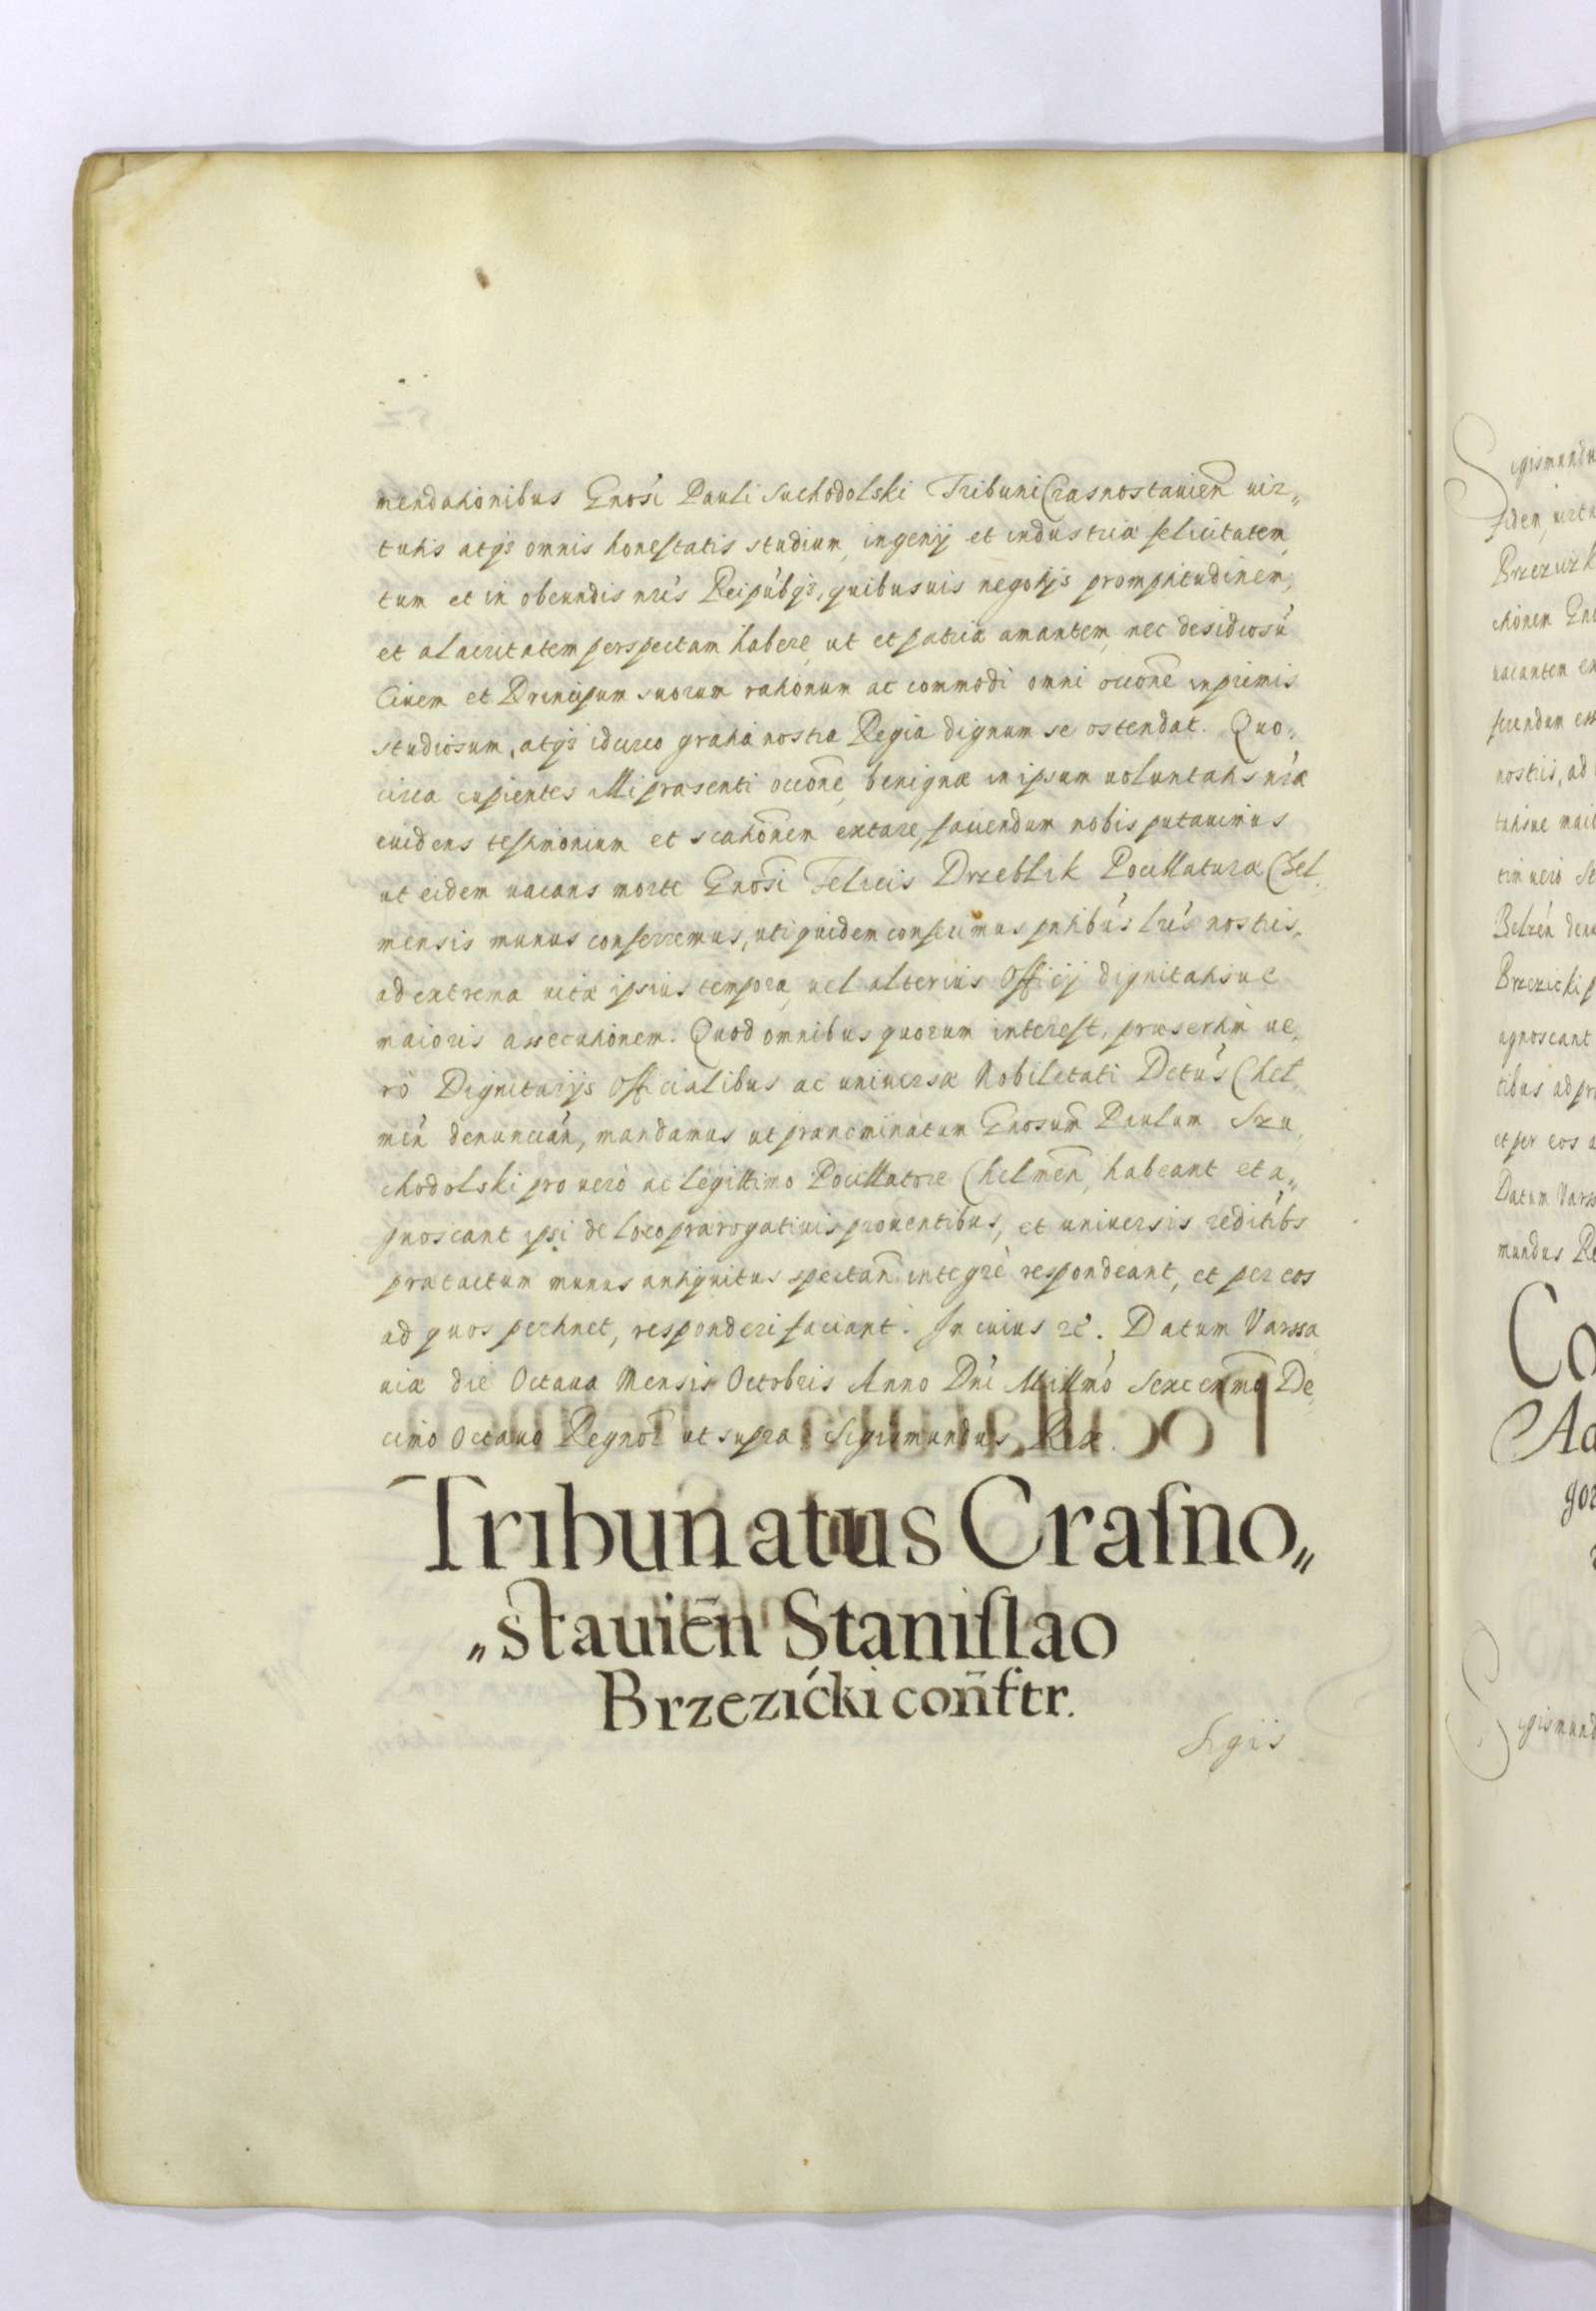 mendationibus Gnosi Pauli Suchodolski Tribuni Crasnostauien uir„
tutis atqs omnis honestatis studium, ingenij et industriæ felicitatem,
tum et in obeundis nris Reipubqs, quibusuis negotijs promptitudinem,
et alacritatem perspectam habere, ut et patriæ amantem, nec desidiosu
Ciuem et Principum suorum rationum ac commodi omni occone inprimis
studiosum, atqs idcirco gratia nostra Regia dignum se ostendat. Quo,
circa cupientes Illi præsenti occone, benignæ in ipsum uoluntatis nræ
euidens testimonium et extare, fauendum nobis putauimus
ut eidem uacans morte Gnosi Felicis Drzeblik Pocillaturæ Chel,
mensis munus conferremus, uti quidem conferimus pntibus lris nostris,
ad extrema uitæ ipsius tempora, uel alterius Officij dignitatisue
maioris assecutionem. Quod omnibus quorum interest, præsertim ue,
rò Dignitarijs Officialibus ac uniuersæ Nobilitati Detus Chel,
men denuncian, mandamus ut prænominatum Gnosum Paulum Szu,
chodolski pro uerò ac legittimo Pocillatore Chelmen, habeant et a„
gnoscant ipsi de loco prærogatiuis prouentibus, et uniuersis reditibs
prætactum munus antiquitus spectan integrè respondeant, et per eos
ad quos pertinet, responderi faciant. In cuius rē. Datum Varssa
uiæ die Octaua Mensis Octobris Anno Dni Millmo Sexcenmo De,
cimo Octauo Regnor ut supra Sigismundus Rex.
Tribunatus Craſno„
„stauien̄ Staniſlao
Brzezićki con̄ftr.
Sigis